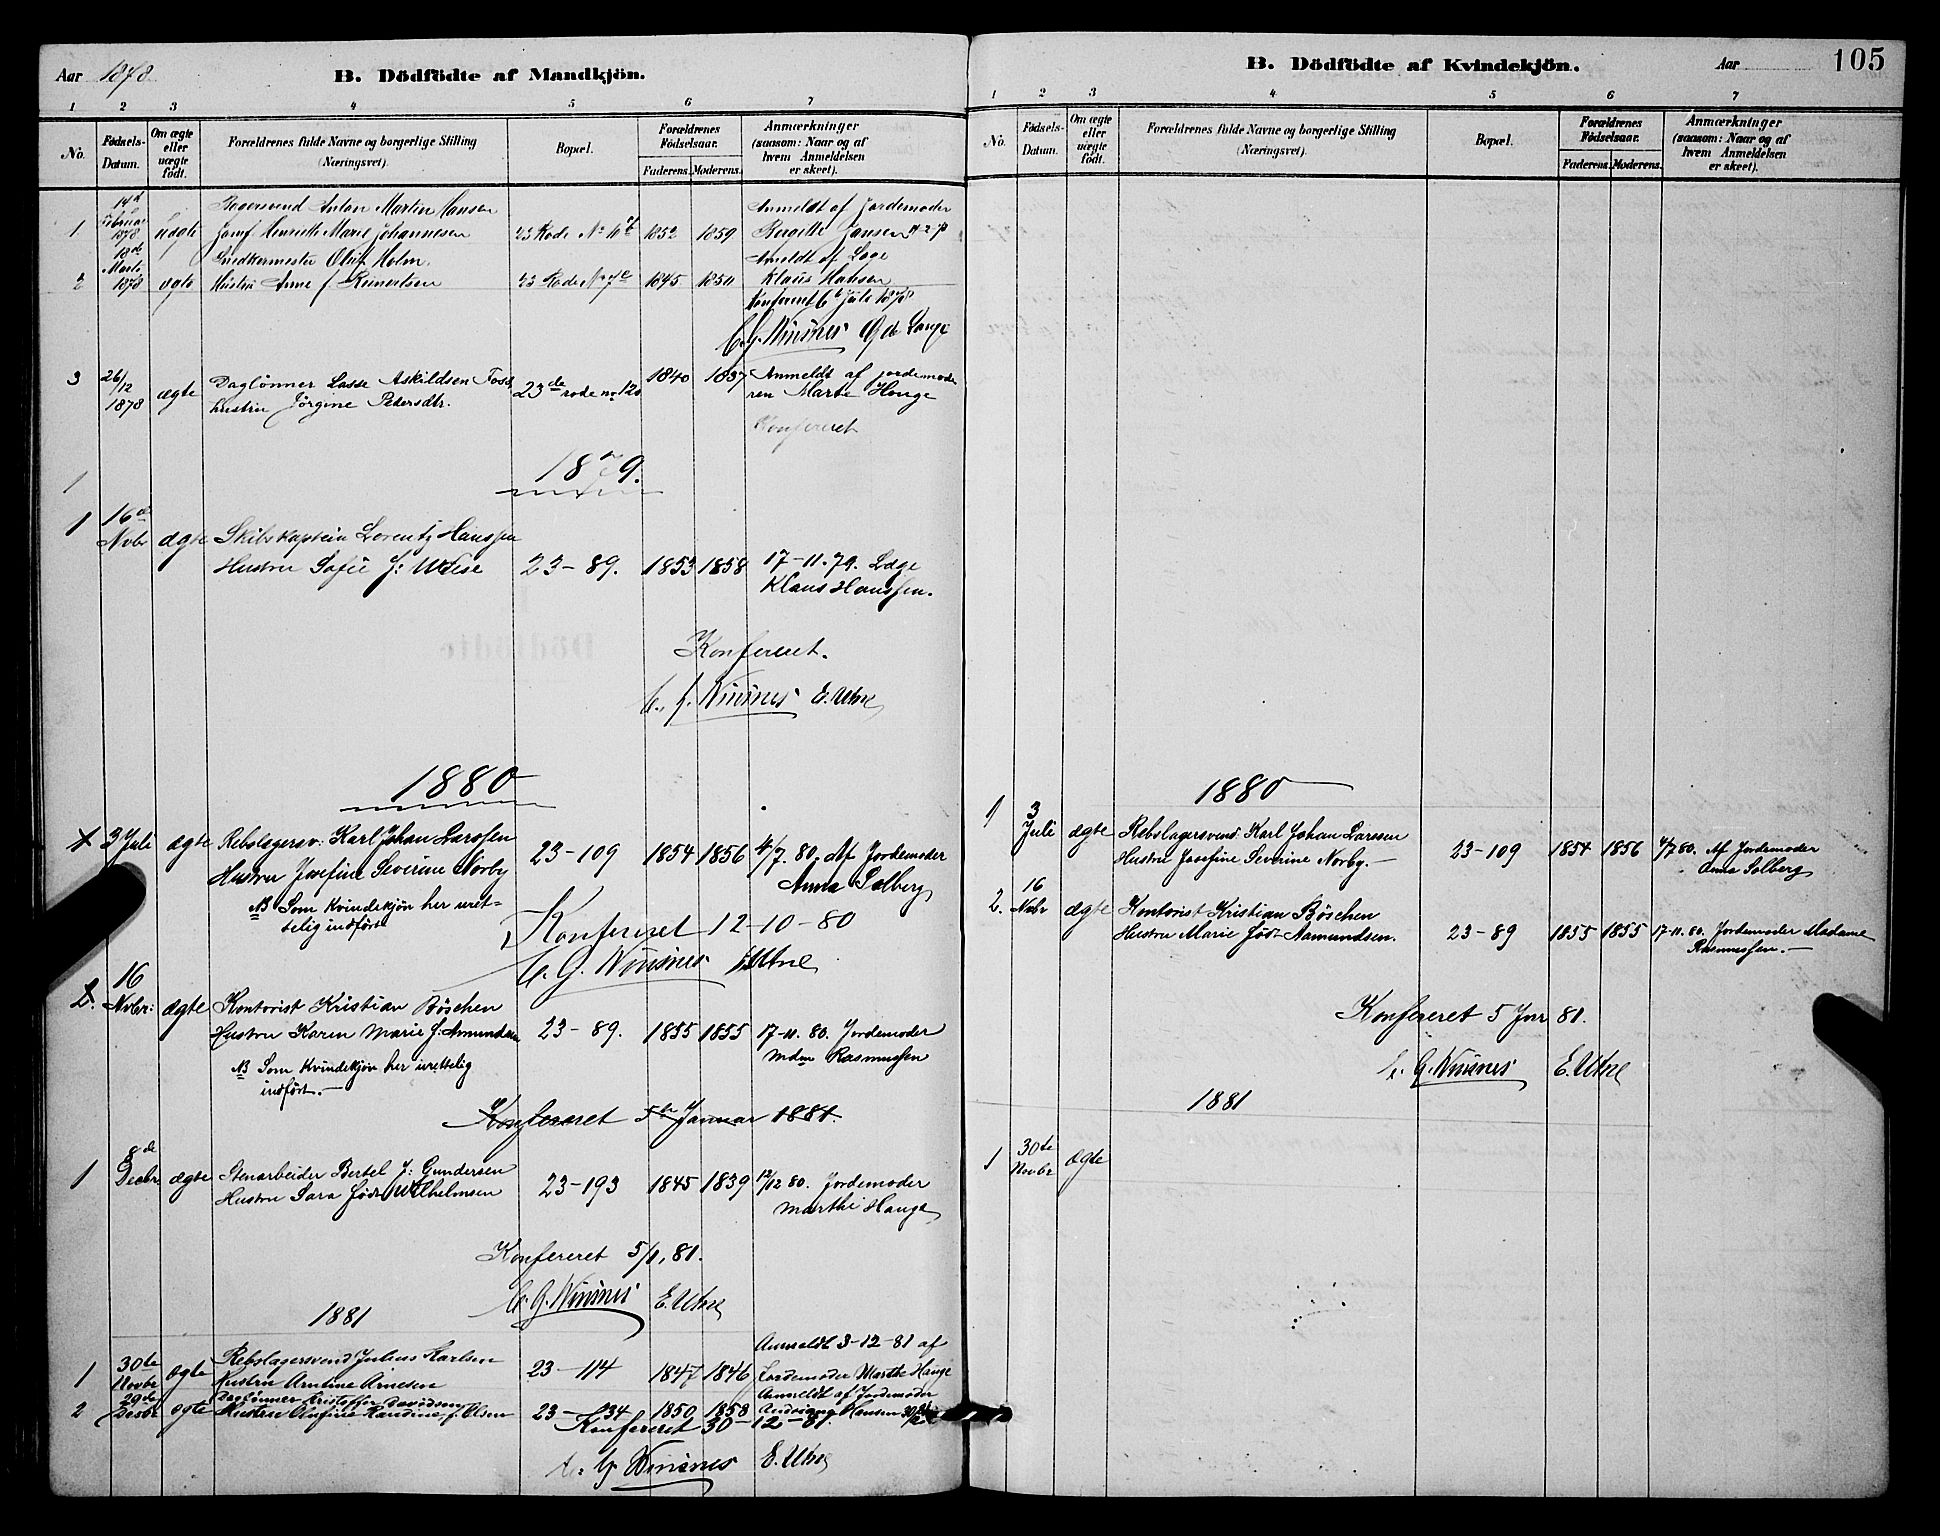 Aar 1878
B. Dödfödte af Mandkjön.
1 2 3 4 5 6 7
No.
Födsels-
Datum.
Om ægte
eller
uægte
födt.
Forældrenes fulde Navne og borgerlige Stilling
(Næringsvei).
Bopæl.
Forældrenes
Födselsaar.
Faderens. Moderens.
Anmærkninger
(saasom: Naar og af
hvem Anmeldelsen
er skeet).
14de Anton Martin Hansen Anmeldt af Jordemoder
1 Februar 1878 Uægte Henriette Marie Johannesen 23 Rode No 10b 1852 1859 Bergitte Jansen
18de Snedkermester Oluf Holm. Anmeldt af Læge
2 Marts 1878 ægte Hustru Anne f. Reinertsen 23 Rode No 1878 1845 1850 Klaus Hansen
Konfereret 6te Juli 1878
C. G. Winsnes
3 26/12 ægte Daglönner Lasse Askildsen Foss, 23de rode no 120 1840 1837 Anmeldt af jordemode
1878 hustru Jörgine Petersdtr. ren Marte Houge
Konfereret
1879.
1
1 16de Novbr ægte Skibskaptein Lorentz Hanssen
Hustru Sofie f: Wiese 23-89. 1853 1858 17-11.79. Læge
Klaus Hanssen.
Konfereret.
C. G. Winsnes E. Utne
1880
1 3 Juli ægte Rebslagersv. Karl Johan Larssen 23-109 1854 1856 4/7. 80. Af Jordemoder
Hustru Josefine Severine Norby Anna Solberg
NB Som Kvindekjön her uret=
telig indført
Konfereret 12-10-80
C. G. Winsnes E Utne
16
2. Novbr: ægte Kontorist Kristian Böschen
Hustru Karen Marie f: Amundsen 23-89. 1855 1855 17-11. 80. Jordemoder
Mdm Rasmussen
NB Som Kvindekjön her urettelig
indført.
Konfereret 5te Januar 1881.
8de
1 Decbr ægte Stenarbeider Bertel J: Gundersen
Hustru Sara födt Wilhelmsen 23-193 1845 1839 12/12 80. Jordemoder
Marthe Hauge
Konfereret 5/1, 81.
C. G. Winsnes E. Utne
1881
1 30te Novbr ægte Rebslagersvend Julius Karlsen 23-114 1847 1846 Anmeldt 3-12-81 af
Hustru Arntine Arnesen Jordemoder Marthe Hauge
2 29de Decbr ægte Daglönner Kristoffer Davidsen Anmeldt af Jordemoder
Hustru Olufine Randine f. Olsen 23-134 1850 1858 Hansen
Konfereret 30-12-81.
C. G. Winsnes E. Utne
B. Dödfödte af Kvindekjön.
Aar
105
1 2 3 4 5 6 7
No.
Födsels-
Datum.
Om ægte
eller
uægte
födt.
Forældrenes fulde Navne og borgerlige Stilling
(Næringsvei).
Bopæl.
Forældrenes
Födselsaar.
Faderens. Moderens.
Anmærkninger
(saasom: Naar og af
hvem Anmeldelsen
er skeet).
1880
1 3 Juli ægte Rebslagersvend Karl Johan Larssen
Hustru Josefine Severine Norby. 23-109 1854 1856 4/7 80. Af Jordemoder
Anna Solberg
16
2. Novbr ægte Kontorist Kristian Böschen
Hustru Marie födt Aamundsen. 23-89 1855 1855 17-11. 80. Jordemoder Madame
Rasmussen.
Konfereret 5 Jnr 81.
C. G. Winsnes E. Utne
1881
1 30te Novbr ægte